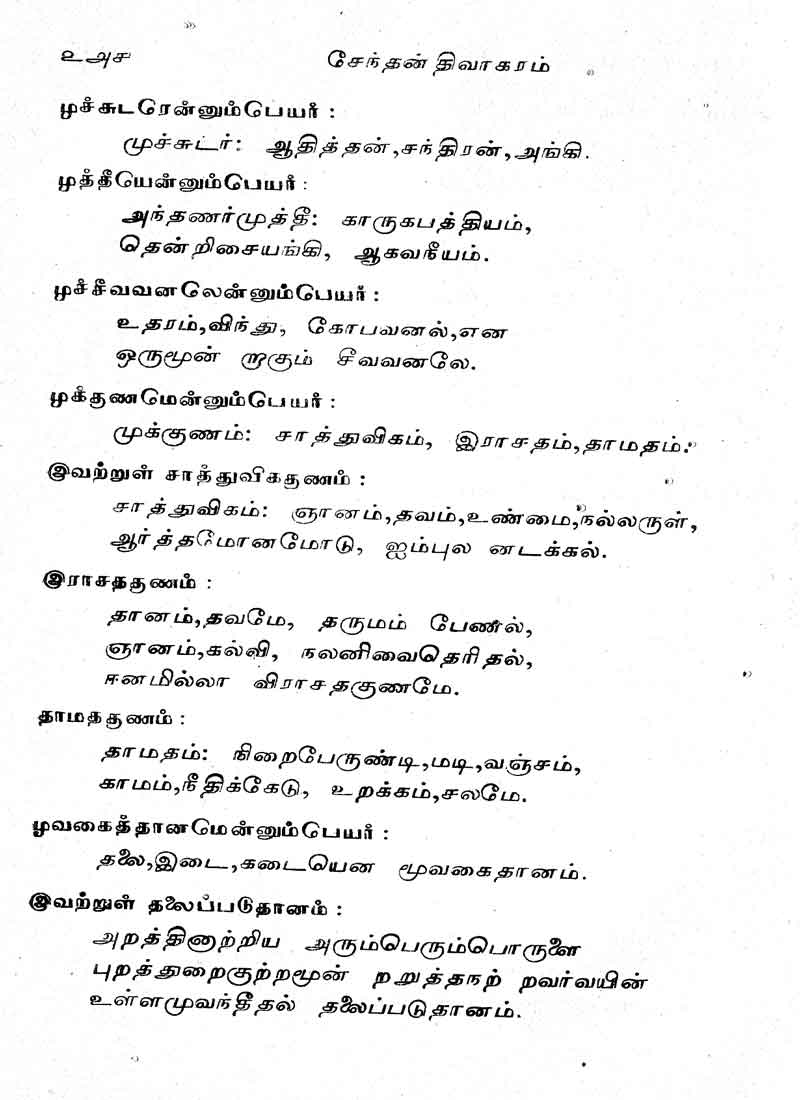 ௨அச சேந்தன் திவாகரம்
முச்சுடரென்னும்பெயர் :
முச்சுடர்: ஆதித்தன்,சந்திரன்,அங்கி.
முத்தீயென்னும்பெயர் :
அந்தணர்முத்தீ: காருகபத்தியம்,
தென்றிசையங்கி, ஆகவநீயம்.
முச்சீவவனலென்னும்பெயர் :
உதரம்,விந்து, கோபவனல்,என
ஒருமூன் றாகும் சீவவனலே.
முக்குணமென்னும்பெயர் :
முக்குணம்: சாத்துவிகம், இராசதம்,தாமதம்.
இவற்றுள் சாத்துவிககுணம் :
சாத்துவிகம்: ஞானம்,தவம்,உண்மை,நல்லருள்,
ஆர்த்தமோனமோடு, ஐம்புல னடக்கல்.
இராசதகுணம் :
தானம்,தவமே, தருமம் பேணல்,
ஞானம்,கல்வி, நலனிவைதெரிதல்,
ஈனமில்லா விராசதகுணமே.
தாமதகுணம் :
தாமதம்: நிறைபேருண்டி,மடி,வஞ்சம்,
காமம்,நீதிக்கேடு, உறக்கம்,சலமே.
மூவகைத்தானமென்னும்பெயர் :
தலை,இடை,கடையென மூவகைதானம்.
இவற்றுள் தலைப்படுதானம் :
அறத்தினாற்றிய அரும்பெரும்பொருளை
புறத்துறைகுற்றமூன் றறுத்தநற் றவர்வயின்
உள்ளமுவந்தீதல் தலைப்படுதானம்.